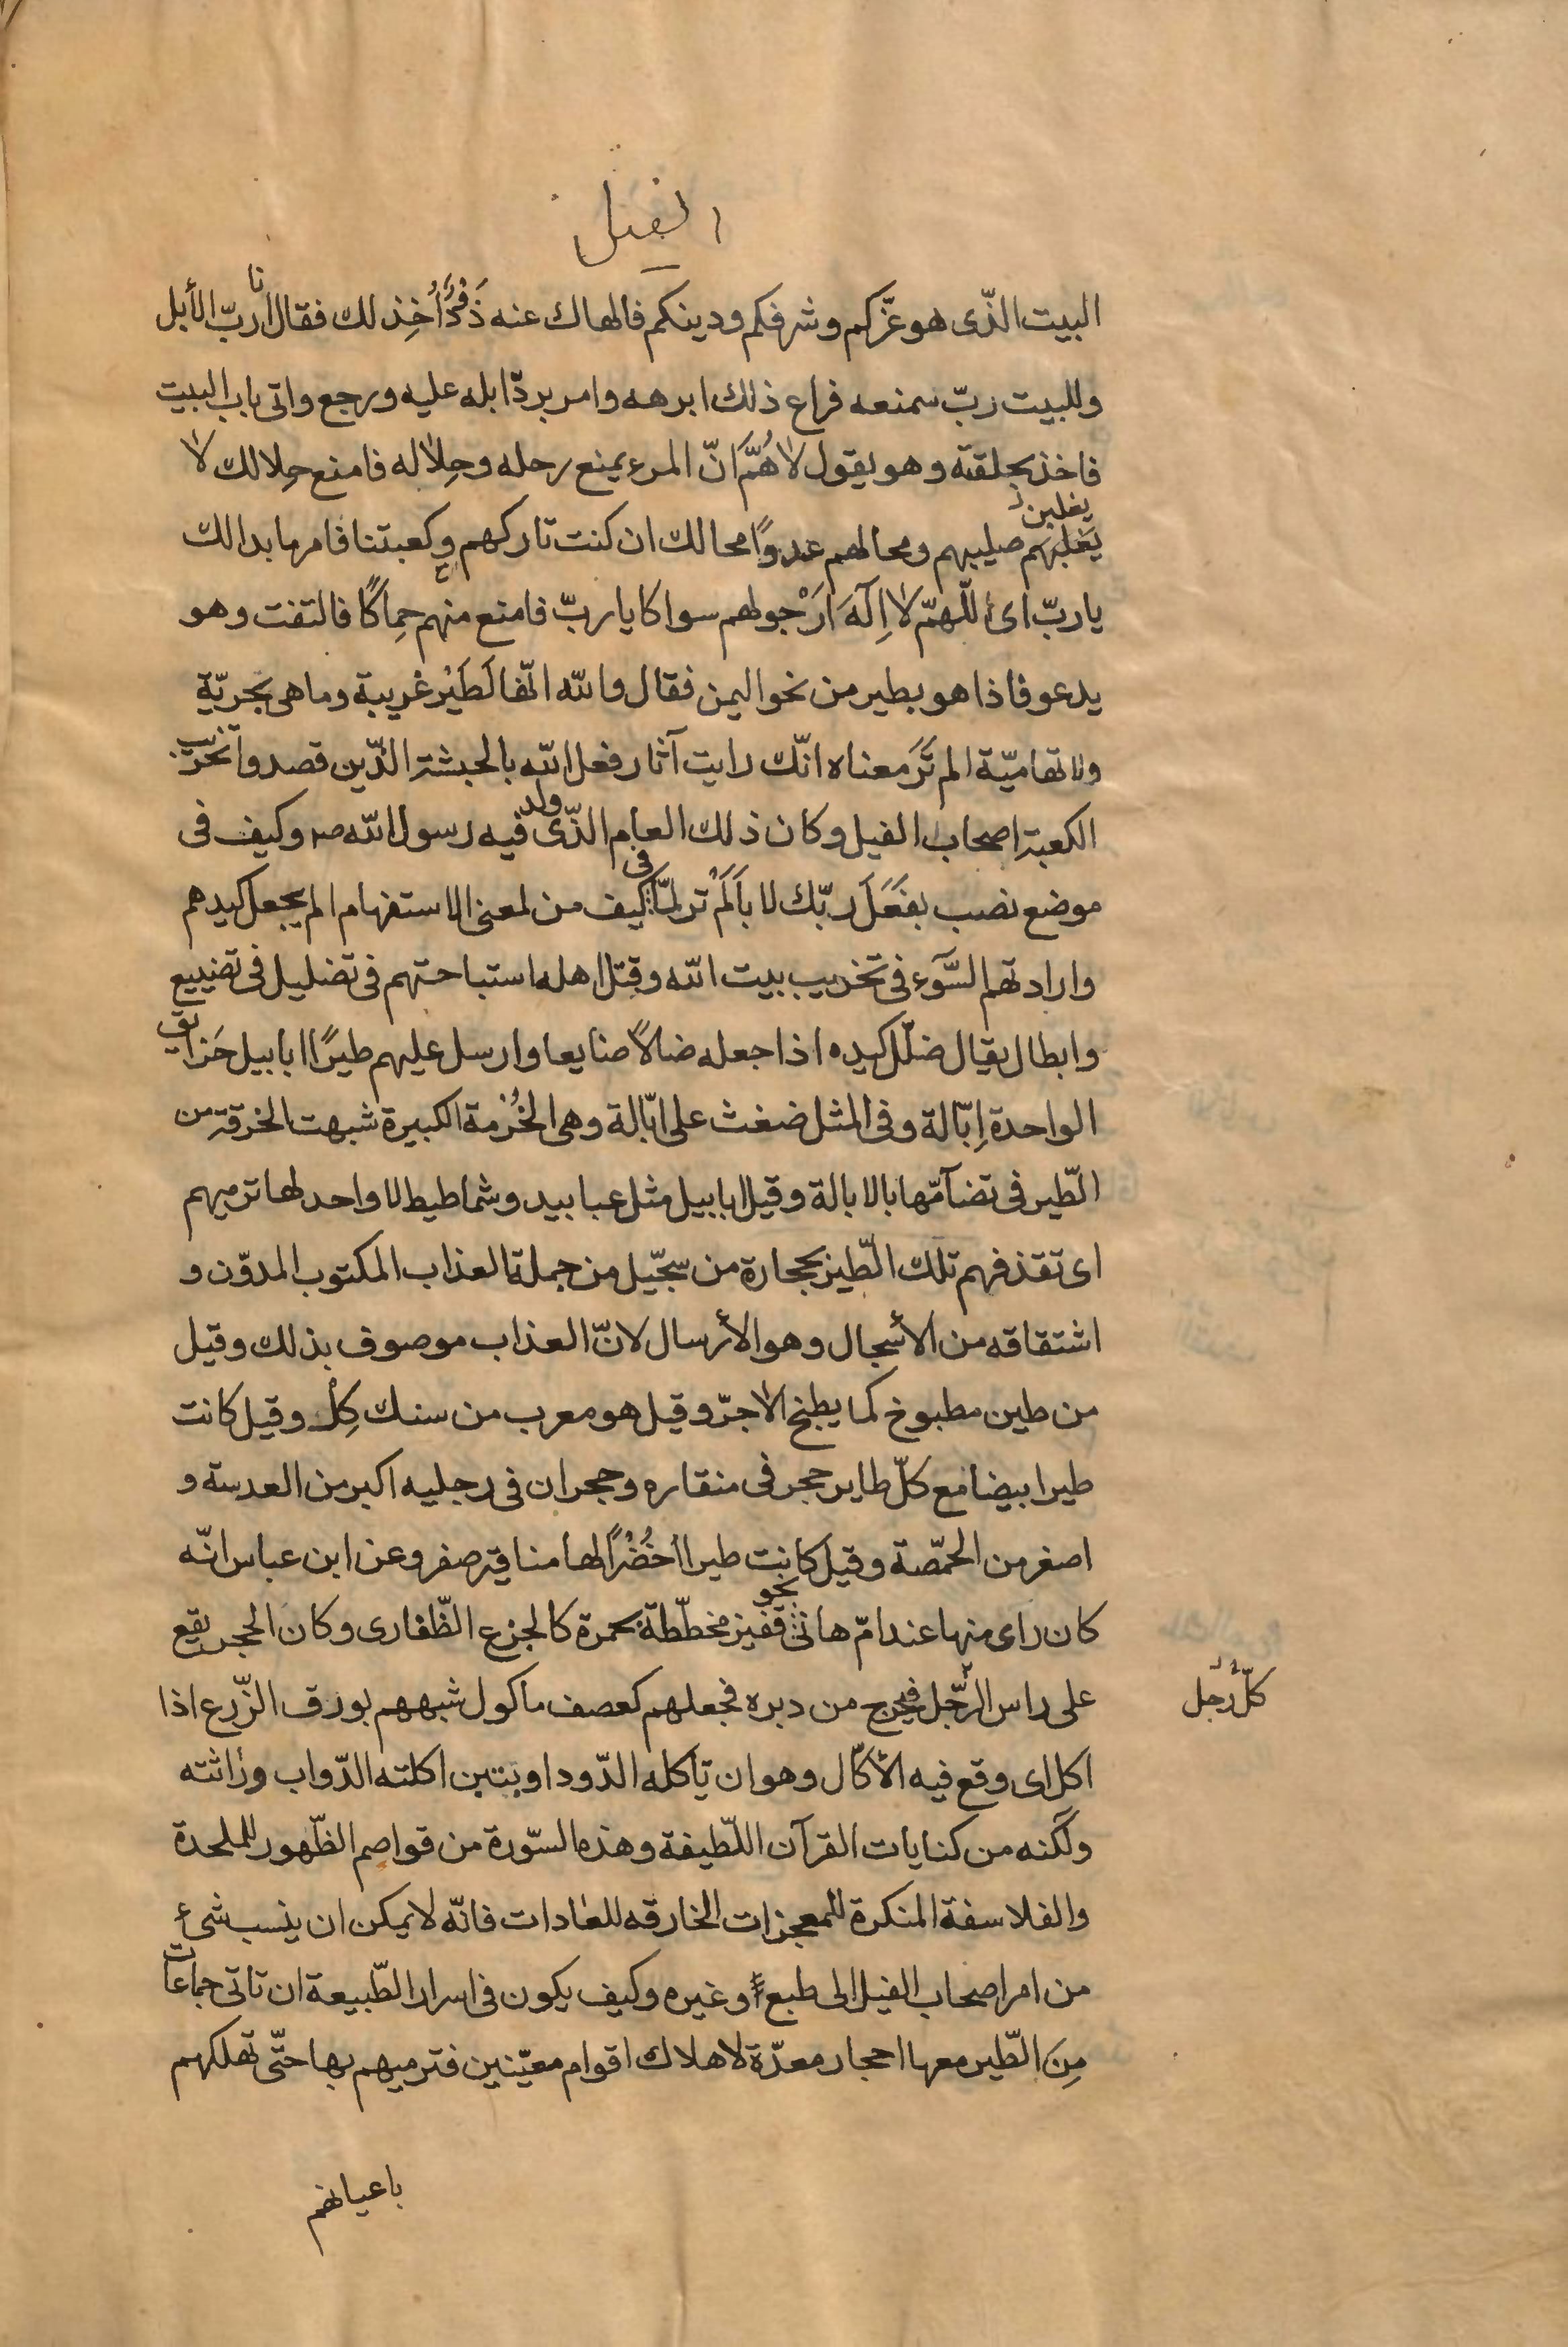 الفيل
البيت الذّى هو عزّكم وشرفكم ودينكم فالهاك عنه ذَوْدٌ اُخِذ لك فقال انا ربّ الأبل
وللبيت ربّ سمنعه فراع ذلك ابرهه وامر بردّ ابله عليه ورجع واتى باب البيت
فاخذ بحلقته وهو يقول لاهُمَّ انّ المرء يمنع رحله وحِلاله فامنع حِلالك لا
يغلبنّ
يَغلبهم صليبهم ومحالهم عدوًا محالك ان كنت تاركهم وكعبتنا فامر ما بدالك
يا ربّ اى اللّهمّ لا اِلَهَ اَرْجو لهم سواكا يا ربّ فامنع منهم حِماكًا فالتفت وهو
يدعو فاذا هو بطير من نحو اليمن فقال والله انّها لَطَيْر غريبة وما هى بحريّة
ولا تهاميّة الم تَرَ معناه انّك رايت آثار فعل الله بالحبشة الذّين قصدوا تخريب
الكعبة اصحاب الفيل وكان ذلك العام الذّى ولد فيه رسول الله صم وكيف فى
موضع نصب بفَعَلَ ربّك لا بأَلَمْ تر لمّا فى كيف من لمعنى الاستفهام الم يجعل كيدهم
وارادتهم السَّوَء فى تخريب بيت الله وقتل اهله استباحتهم فى تضليل فى تضييع
وابطال يقال ضلّل كيده اذا جعله ضالاً ضايعا وارسل عليهم طيرًا ابابيل حَزايق
الواحدة اِبّالة وفى المثل ضغث على ابّالة وهى الحُزمة الكبيرة شبهت الخرقة من
الطّير فى تضآمّها بالابالة وقيل ابابيل مثل عبابيد وشماطيط لا واحد لها ترميهم
اى تقذفهم تلك الطّير بحجارة من سجّيل من جملة العذاب المكتوب المدوّن و
اشتقاقه من الأسجال وهو الأرسال لانّ العذاب موصوف بذلك وقيل
من طين مطبوخ كما يطبخ الاجرّ وقيل هو معرب من سنك كِلْ وقيل كانت
طيرا بيضا مع كلّ طاير حجر فى منقاره وحجران فى رجليه اكبر من العدسة و
اصغر من الحمّصة وقيل كانت طيرا اخُضْرًا لها مناقير صفر وعن ابن عباس انّه
كان راى منها عند امّ هانئ نحو قفيز مخطّطة بحمرة كالجزع الظّفارى وكان الحجر يقع
على راس الرّجل فيخرج من دبره فجعلهم كعصف ماكول شبههم بورق الزّرع اذا
كلّ رجل
اكل اى وقع فيه الأكّال وهو ان تأكله الدّود او بتبن اكلته الدّواب وراثته
ولكنه من كنايات القرآن اللّطيفة وهذه السّورة من قواصم الظّهور للملحدة
والفلاسفة المنكرة للمعجزات الخارقه للعادات فانّه لا يمكن ان ينسب شىء
من امر اصحاب الفيل الى طبع وغيره وكيف يكون فى اسرار الطّبيعة ان تاتى جماعات
مِنَ الطّير معها احجار معدّة لاهلاك اقوام معيّنين فترميهم بها حتّى تهلكهم
باعيانهم